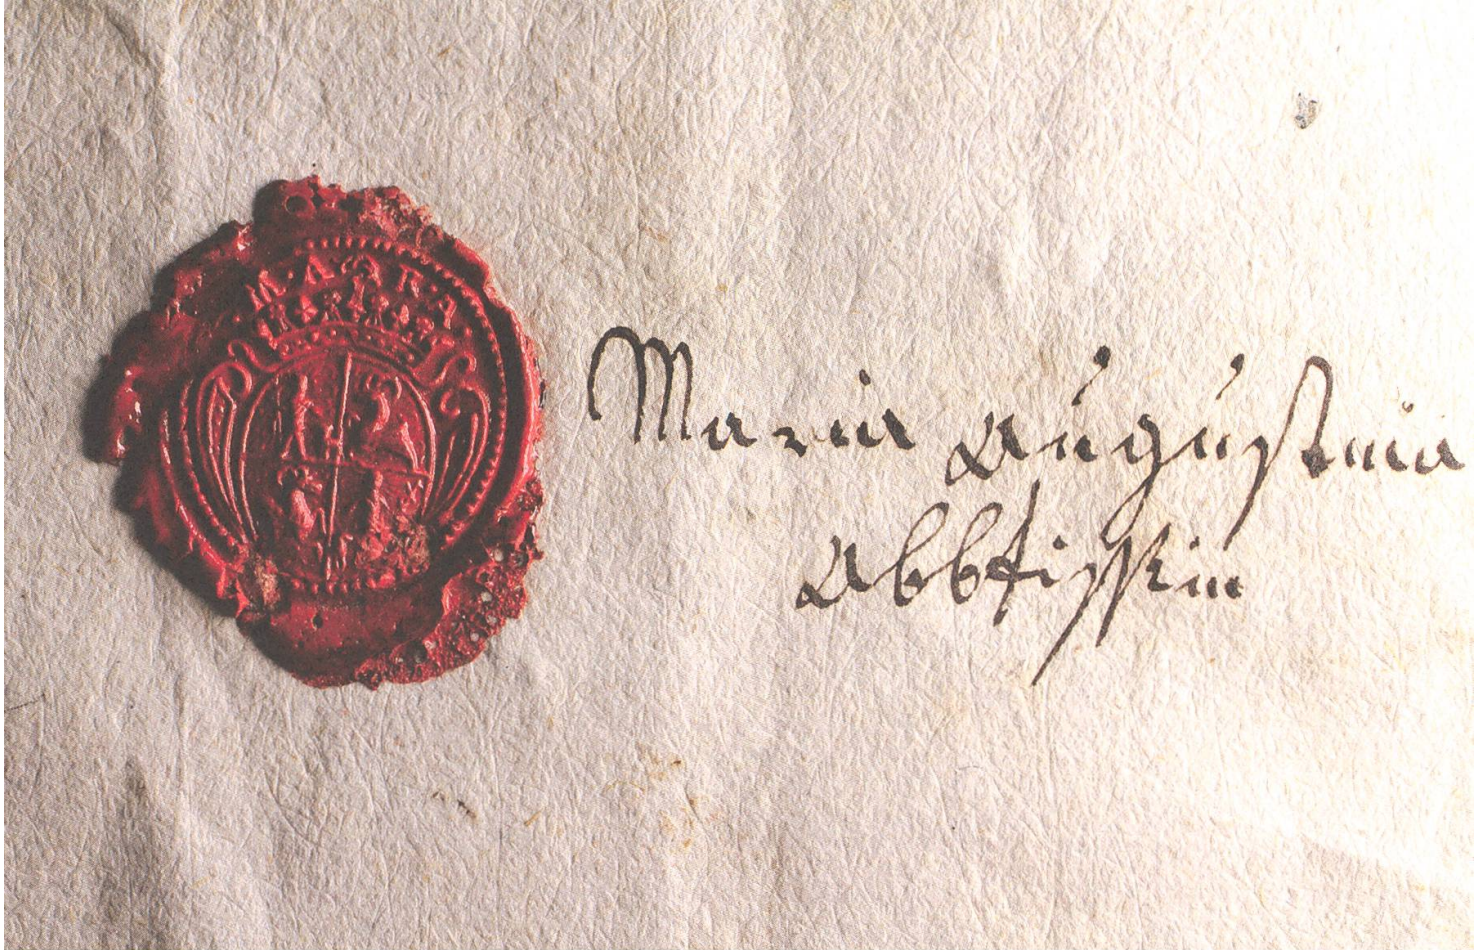 Maria Augustina
Abbtissin